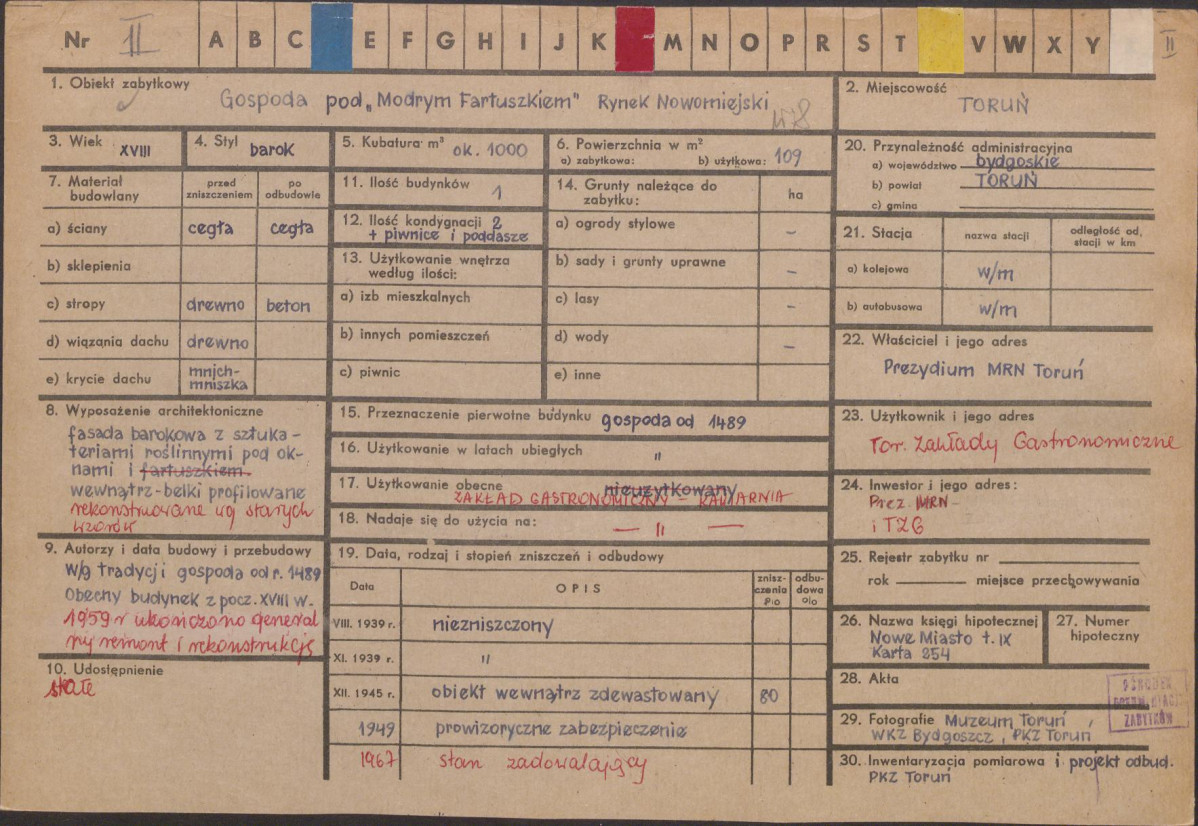 Nr II A B C E F G H I J K M N O P R S T V W X Y II
1. Obiekt zabytkowy
Gospoda pod „Modrym Fartuszkiem" Rynek Nowomiejski
178
2. Miejscowość
TORUŃ
3. Wiek XVIII
4. Styl barok
5. Kubatura m³ ok. 1000
6. Powierzchnia w m²
a) zabytkowa: b) użytkowa: 109
20. Przynależność administracyjna
a) województwo bydgoskie
b) powiat TORUŃ
c) gmina
7. Materiał budowlany
przed zniszczeniem
po odbudowie
a) ściany cegła cegła
b) sklepienia
c) stropy drewno beton
d) wiązania dachu drewno
e) krycie dachu mnich-
mniszka
11. Ilość budynków 1
12. Ilość kondygnacji 2
+ piwnice i poddasze
13. Użytkowanie wnętrza
według ilości:
a) izb mieszkalnych
b) innych pomieszczeń
c) piwnic
14. Grunty należące do
zabytku: ha
a) ogrody stylowe –
b) sady i grunty uprawne –
c) lasy –
d) wody –
e) inne
21. Stacja
nazwa stacji
odległość od,
stacji w km
a) kolejowa w/m
b) autobusowa w/m
22. Właściciel i jego adres
Prezydium MRN Toruń
8. Wyposażenie architektoniczne
fasada barokowa z sztuka-
teriami roślinnymi pod ok-
nami i fartuszkiem.
wewnątrz-belki profilowane
rekonstruowane wg starych
wzorów
15. Przeznaczenie pierwotne budynku gospoda od 1489
16. Użytkowanie w latach ubiegłych "
17. Użytkowanie obecne nieużytkowany
ZAKŁAD GASTRONOMICZNY – KAWIARNIA
18. Nadaje się do użycia na: — " —
23. Użytkownik i jego adres
Tor. Zakłady Gastronomiczne
24. Inwestor i jego adres:
Prez. MRN -
i TZG
9. Autorzy i data budowy i przebudowy
W/g tradycji gospoda od r. 1489
Obecny budynek z pocz. XVIII w.
1959 r ukończono general
ny remont i rekonstrukcję
10. Udostępnienie
stałe
19. Data, rodzaj i stopień zniszczeń i odbudowy
Data
OPIS
znisz-
czenia
%
odbu-
dowa
%
VIII. 1939 r. niezniszczony
XI. 1939 r. "
XII. 1945 r. obiekt wewnątrz zdewastowany 80
1949 prowizoryczne zabezpieczenie
1967 stan zadowalający
25. Rejestr zabytku nr
rok miejsce przechowywania
26. Nazwa księgi hipotecznej
Nowe Miasto t. IX
Karta 254
27. Numer
hipoteczny
28. Akta
OŚRODEK
DOKUMENTACJI
ZABYTKÓW
29. Fotografie Muzeum Toruń,
WKZ Bydgoszcz, PKZ Toruń
30. Inwentaryzacja pomiarowa i projekt odbud.
PKZ Toruń